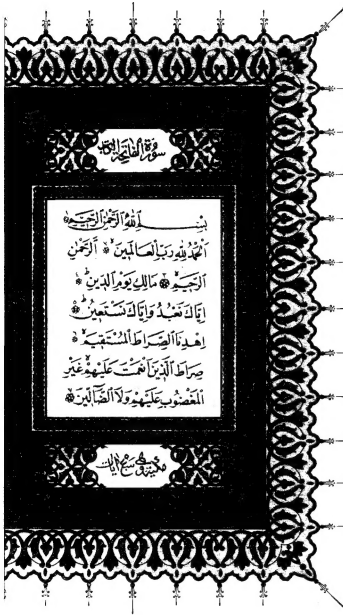 سُورَةُ الْفَاتِحَةِ
بِسْمِ اللهِ الرَّحْمٰنِ الرَّحِيمِ
اَلْحَمْدُ لِلّٰهِ رَبِّ الْعَالَمِينَ ۞ اَلرَّحْمٰنِ
الرَّحِيمِ ۞ مَالِكِ يَوْمِ الدِّينِ ۞
اِيَّاكَ نَعْبُدُ وَاِيَّاكَ نَسْتَعِينُ ۞
اِهْدِنَا الصِّرَاطَ الْمُسْتَقِيمَ ۞
صِرَاطَ الَّذِينَ اَنْعَمْتَ عَلَيْهِمْ غَيْرِ
الْمَغْضُوبِ عَلَيْهِمْ وَلَا الضَّالِّينَ ۞
مكية وهي سبع آيات